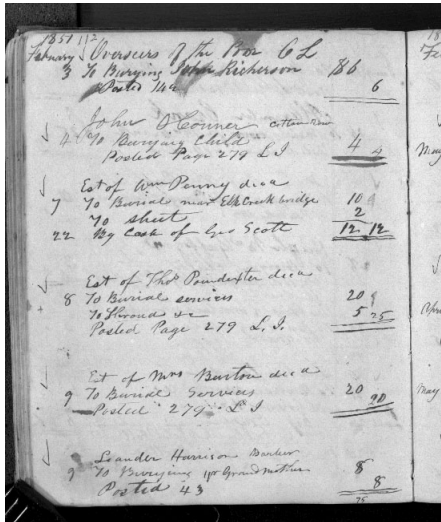 1851 112
February Overseers of the Poor C L
3 To Burying John Richerson $6
Posted 142 6
John O'Conner cotton
4 To Burying Child 4
Posted Page 279 L I 4
Est of Wm Penny decd
7 To Burial near Elk Creek bridge 10
To sheet 2
22 By Cash of Geo Scott 12 12
Est of Thos Poindexter decd
8 To Burial services 20
To Shroud &c 5 25
Posted Page 279 L. I.
Est of Mrs Burton decd
9 To Burial Services 20
Posted 279 L I 20
Leander Harrison Barber
9 To Burying Grand mother 8
Posted 43 8
May
Apri
May